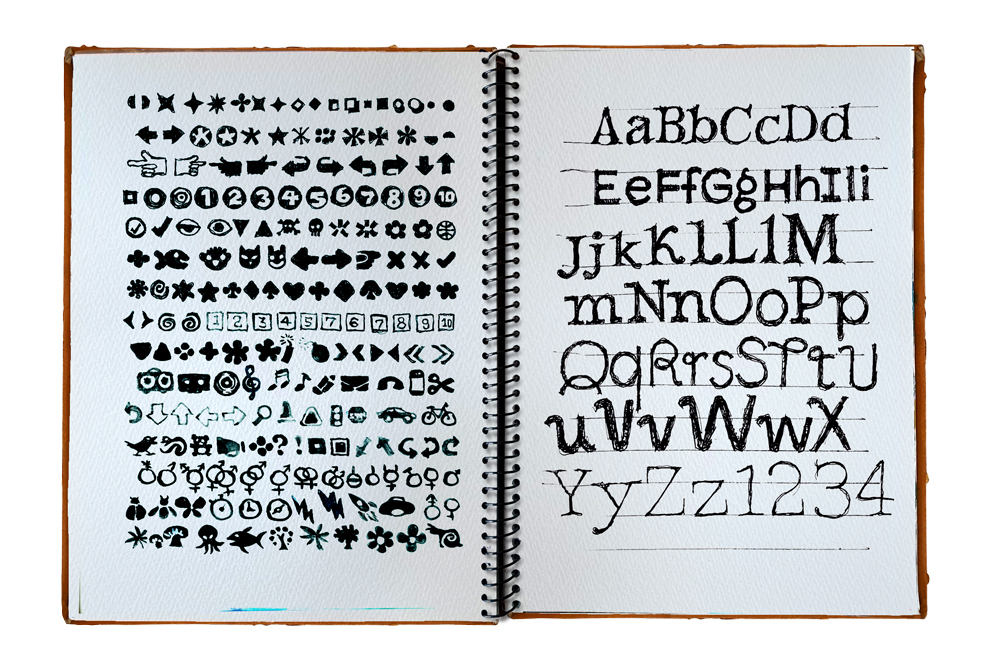 1 2 3 4 5 6 7 8 9 10
1 2 3 4 5 6 7 8 9 10
? !
AaBbCcDd
EeFfGgHhIli
JjkKlLlM
mNnOoPp
QqRrsSTtU
uVvWwX
YyZz1234